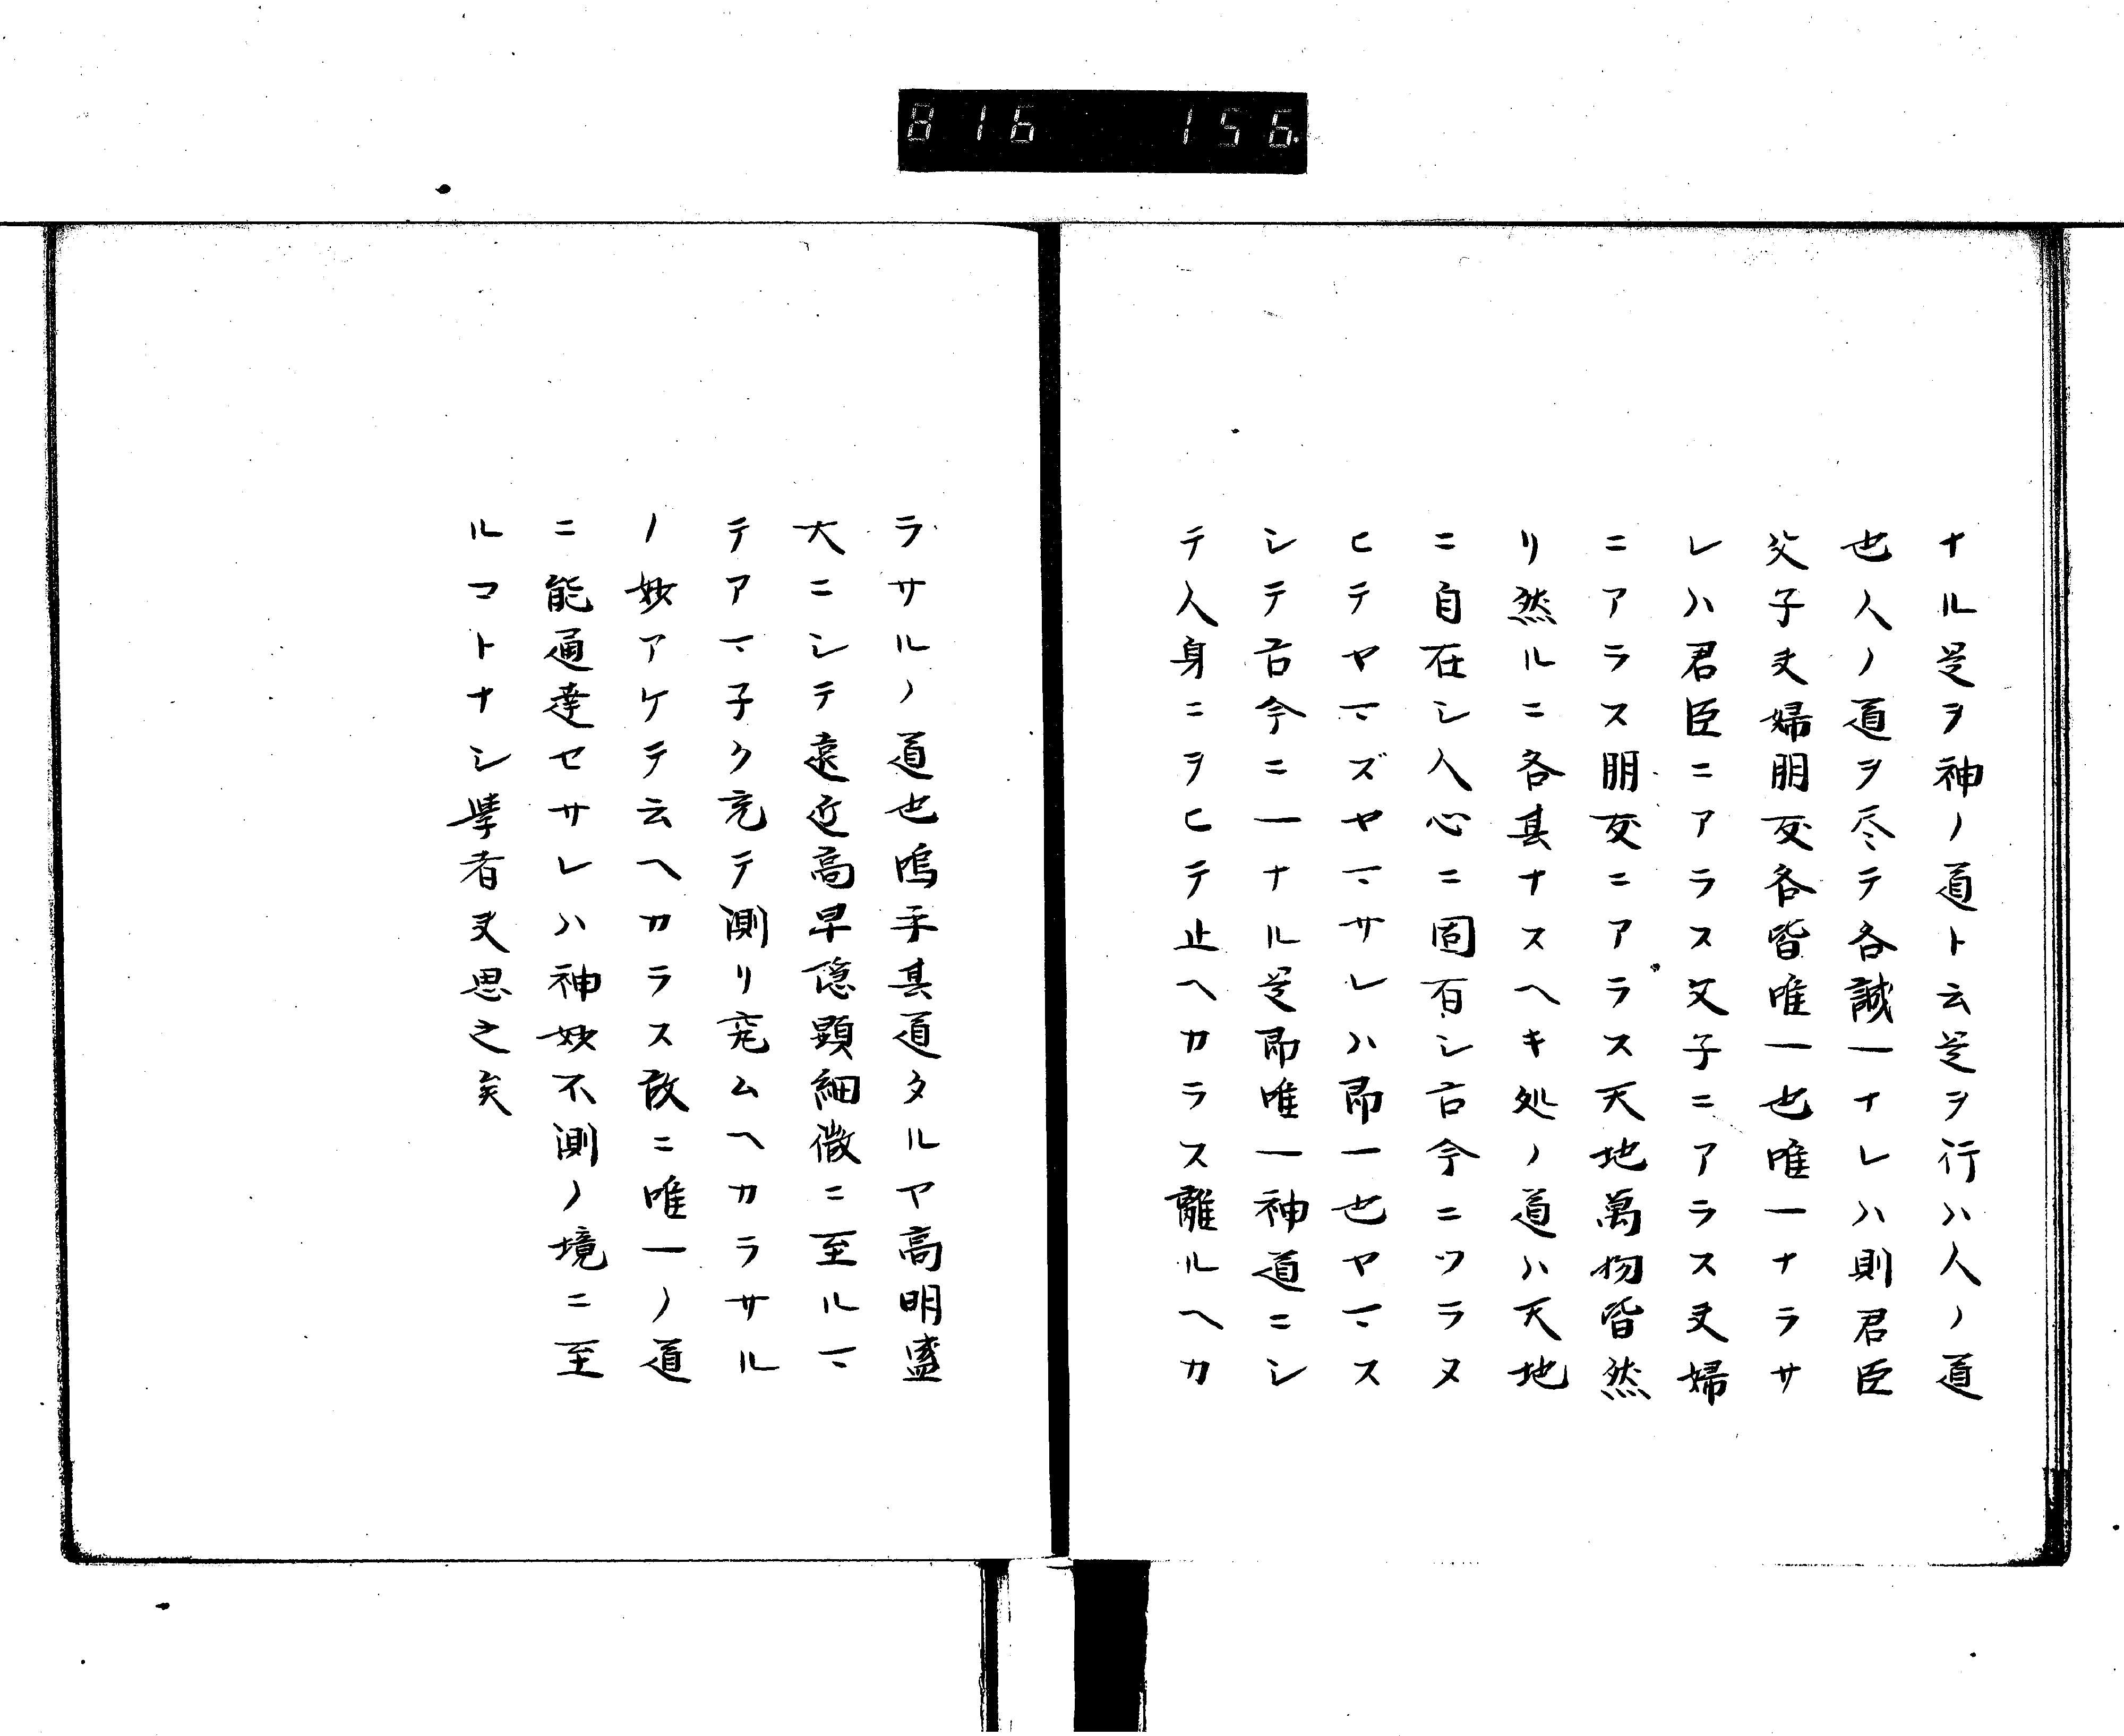 816 156
ナル是ヲ神ノ道ト云是ヲ行ハ人ノ道
也人ノ道ヲ尽テ各誠一ナレハ則君臣
父子夫婦朋友各皆唯一也唯一ナラサ
レハ君臣ニアラス父子ニアラス夫婦
ニアラス朋友ニアラス天地萬物皆然
リ然ルニ各其ナスヘキ処ノ道ハ天地
ニ自在シ人心ニ固有シ古今ニツラヌ
ヒテヤマズヤマサレハ即一也ヤマス
シテ古今ニ一ナル是即唯一神道ニシ
テ人身ニヲヒテ止ヘカラス離ルヘカ
ラサルノ道也嗚乎其道タルヤ高明盛
大ニシテ遠近高卑隠顕細微ニ至ルマ
テアマ子ク充テ測リ究ムヘカラサル
ノ妙アケテ云ヘカラス故ニ唯一ノ道
ニ能通達セサレハ神妙不測ノ境ニ至
ルヿトナシ學者夫思之矣